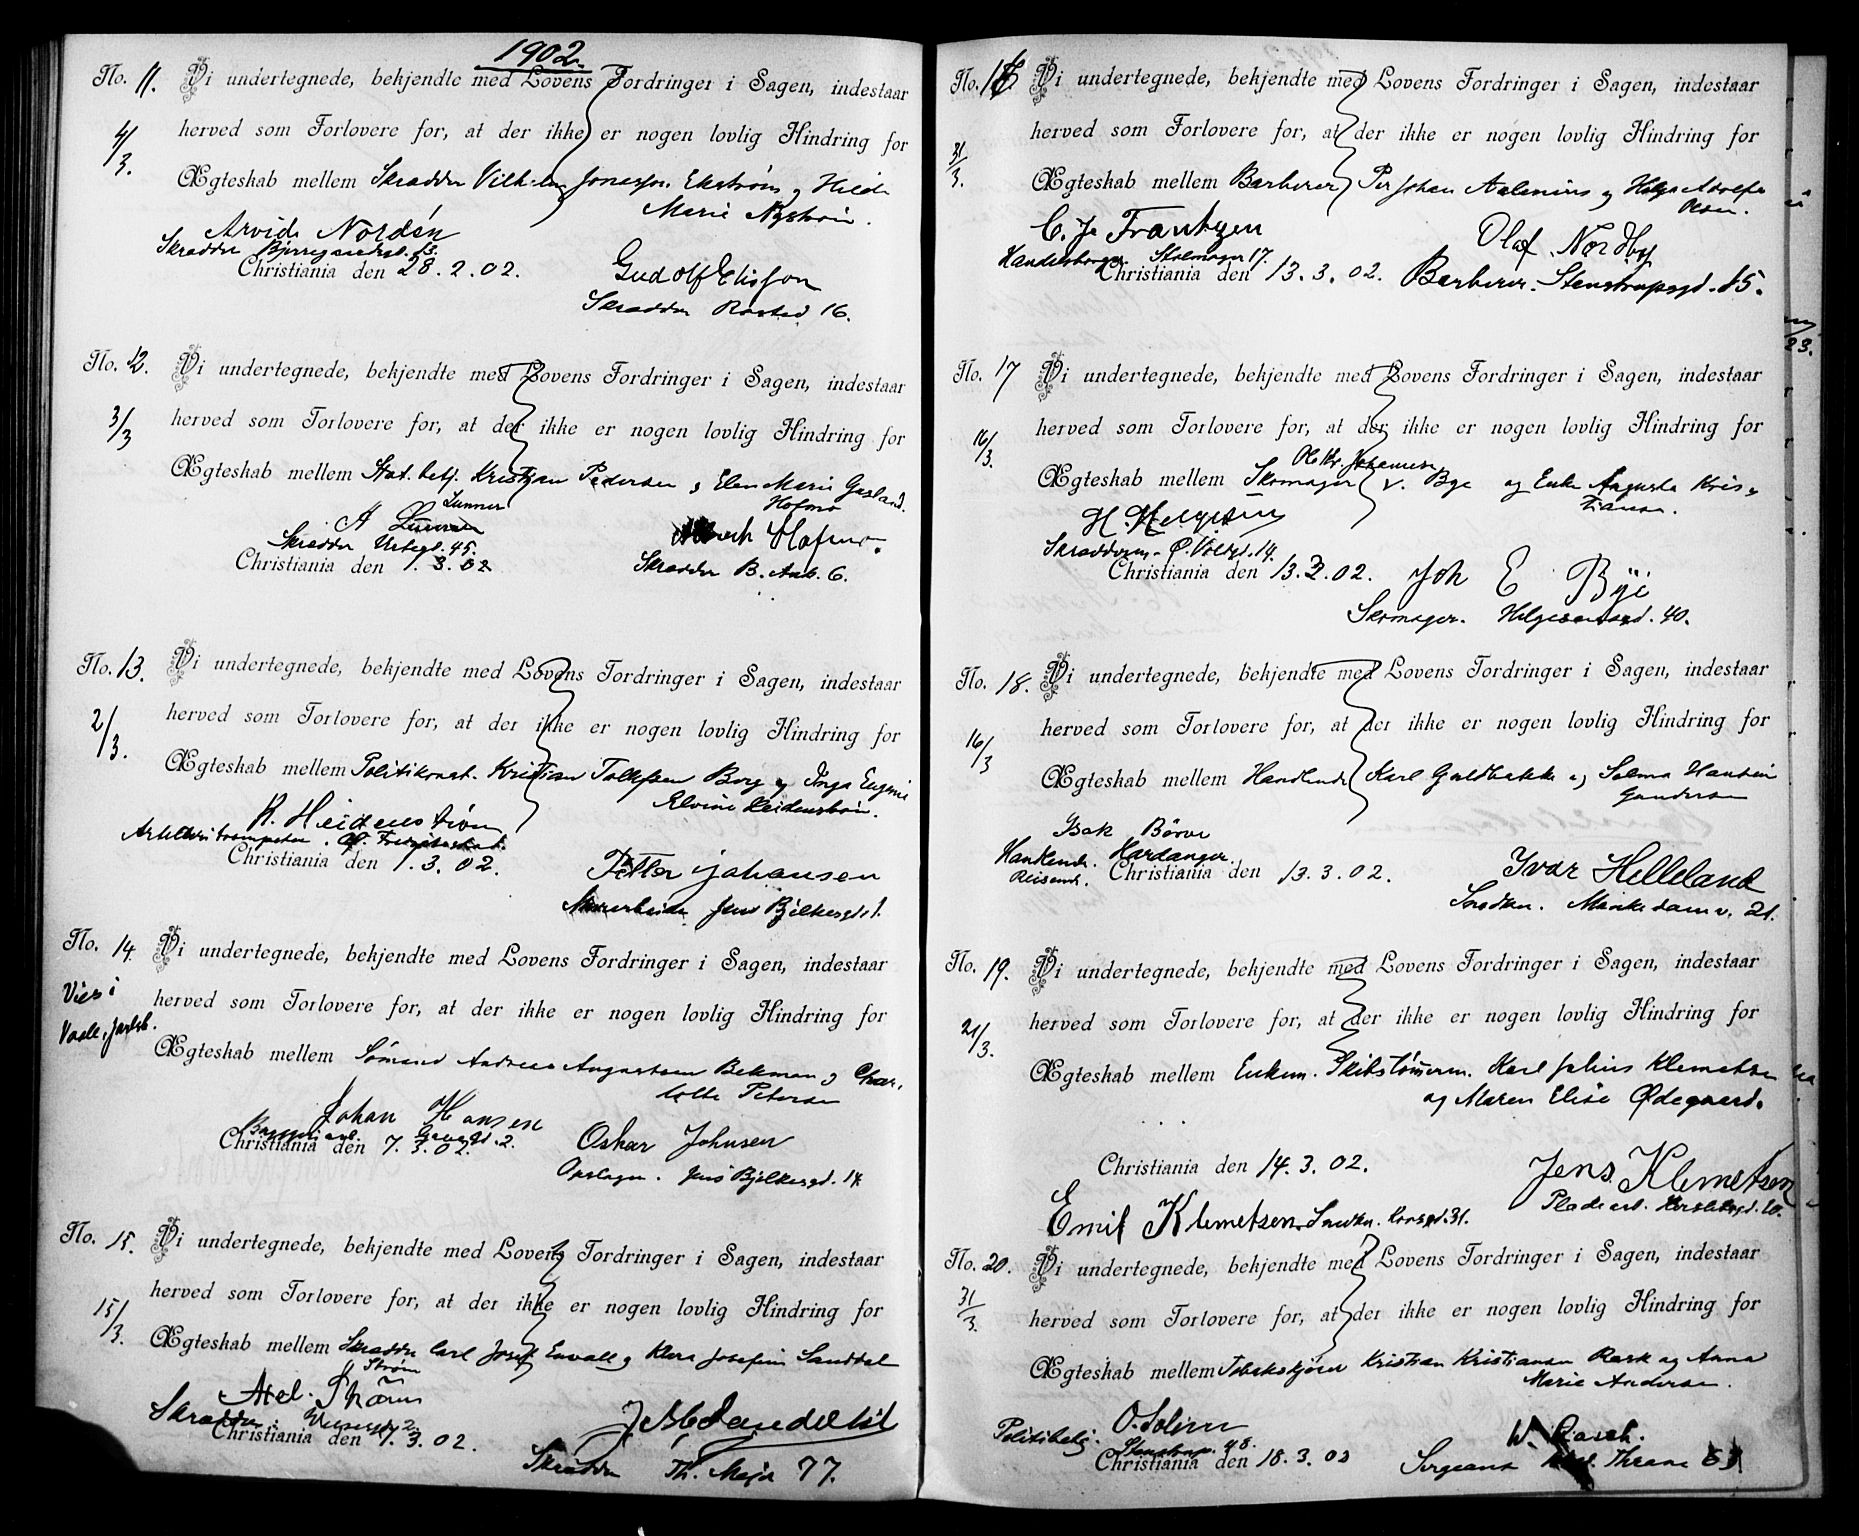 1902.
No. 11. Vi undertegnede, bekjendte med Lovens Fordringer i Sagen, indestaar
4/3. herved som Forlovere for, at der ikke er nogen lovlig Hindring for
Ægteskab mellem Skrædder Vilhelm Ekstrøm og Hilda
Marie Nystrøm.
Arvid Nordén
Skrædder
Christiania den 28.2.02.
Gudolf Elisson
Skrædder Rosted 16.
No. 12. Vi undertegnede, bekjendte med Lovens Fordringer i Sagen, indestaar
3/3 herved som Forlovere for, at der ikke er nogen lovlig Hindring for
Ægteskab mellem Stat. betj. Kristian Pedersen og Elen Marie Gasland
Hofmo
Lunner
A
Skrædder Urtegd. 45.
Christiania den 1.3.02
Hofmo.
Skrædder B. Ank. 6.
No. 13. Vi undertegnede, bekjendte med Lovens Fordringer i Sagen, indestaar
2/3. herved som Forlovere for, at der ikke er nogen lovlig Hindring for
Ægteskab mellem Politikonst. Kristian Tollefsen Borg og Inga Eugenie
Elvine Heidenstrøm.
R. Heidenstrøm
Christiania den 1.3.02.
Petter Johansen
Jens Bjelkesgd 1.
No. 14. Vi undertegnede, bekjendte med Lovens Fordringer i Sagen, indestaar
Vies i
Vaale, Jarlsb.
herved som Forlovere for, at der ikke er nogen lovlig Hindring for
Ægteskab mellem Sømand Andreas Augustsen Bekman og Char,
lotte Petersen
Johan Hansen
Christiania den 7.3.02.
Oskar Johnsen
Jens Bjelkesgd. 14
No. 15. Vi undertegnede, bekjendte med Lovens Fordringer i Sagen, indestaar
15/3. herved som Forlovere for, at der ikke er nogen lovlig Hindring for
Ægteskab mellem Skrædder Carl Josef Envall og Klara Josefine Sanddal
Strøm
Axel. Strøm
Skrædder
Christiania den 7.3.02.
Skrædder Th. Mejer 77.
No. 16 Vi undertegnede, bekjendte med Lovens Fordringer i Sagen, indestaar
31/3. herved som Forlovere for, at der ikke er nogen lovlig Hindring for
Ægteskab mellem Barberer Per Johan Aalenius og Helga Adolfa
Olsen.
C. J. Frantzen
Christiania den 13.3.02.
Olaf Nordby
Barberer. Stenstrupsgd. 15.
No. 17 Vi undertegnede, bekjendte med Lovens Fordringer i Sagen, indestaar
16/3. herved som Forlovere for, at der ikke er nogen lovlig Hindring for
Ole Kr. Johannesen
Ægteskab mellem Skomager v. Bye og Enke Augusta Kris-
tiansen.
H. Helgesen
Skræddersv. Ø. Voldgd. 14.
Christiania den 13.3.02.
Joh E Bye
Skomager. Helgesensgd. 40.
No. 18. Vi undertegnede, bekjendte med Lovens Fordringer i Sagen, indestaar
16/3 herved som Forlovere for, at der ikke er nogen lovlig Hindring for
Ægteskab mellem Handlende Karl Guldbakke og Selma Hansine
Gundersen
Isak Børve
Handlende. Hardanger.
Reisende.
Christiania den 13.3.02.
Ivar Helleland
Snedker. Munkedamsv. 21.
No. 19. Vi undertegnede, bekjendte med Lovens Fordringer i Sagen, indestaar
21/3. herved som Forlovere for, at der ikke er nogen lovlig Hindring for
Ægteskab mellem Enkem. Skibstømrerm. Karl Julius Klemetsen
og Maren Elise Ødegaard.
Christiania den 14.3.02.
Jens Klemetsen
Pladearb.
Emil Klemetsen Snedker. 31.
No. 20. Vi undertegnede, bekjendte med Lovens Fordringer i Sagen, indestaar
31/3. herved som Forlovere for, at der ikke er nogen lovlig Hindring for
Ægteskab mellem Kristian Kristiansen Rask og Anna
Marie Andersen.
O. Solum
Politibetj. Stenstrup. 48.
Christiania den 18.3.02
W. Rasch.
Sergeant Thrane